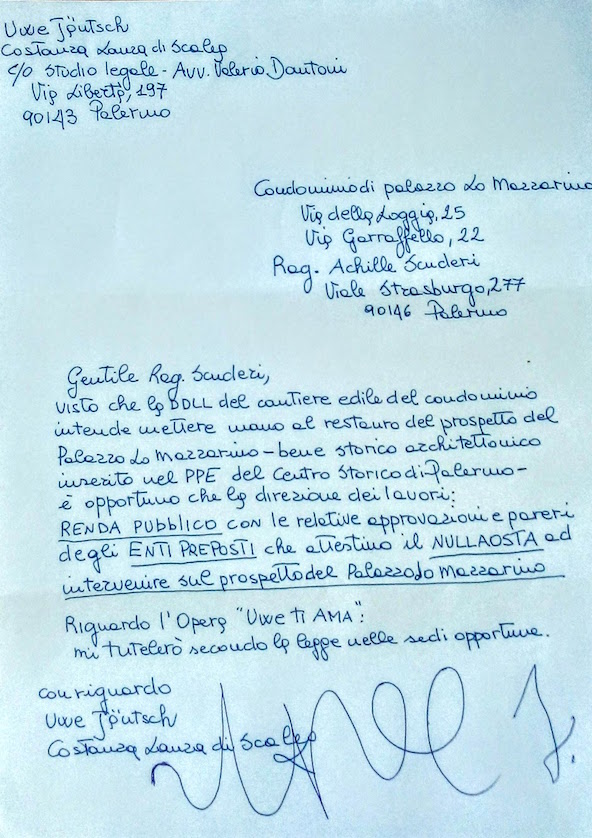 Uwe Jäntsch
Costanza Lanza di Scalea
c/o Studio legale - Avv. Valerio Dantoni
Via Libertà, 197
90143 Palermo
Condominio di palazzo Lo Mazzarino
Via della Loggia, 25
Via Garraffello, 22
Rag. Achille Scuderi
Viale Strasburgo, 277
90146 Palermo
Gentile Rag. Scuderi,
visto che la DDLL del cantiere edile del condominio
intende mettere mano al restauro del prospetto del
Palazzo Lo Mazzarino - bene storico architettonico
inserito nel PPE del Centro Storico di Palermo -
è opportuno che la direzione dei lavori:
RENDA PUBBLICO con le relative approvazioni e pareri
degli ENTI PREPOSTI che attestino il NULLAOSTA ad
intervenire sul prospetto del Palazzo Lo Mazzarino
Riguardo l'Opera "Uwe ti AMA":
mi tutelerò secondo la legge nelle sedi opportune.
con riguardo
Uwe Jäntsch
Costanza Lanza di Scalea